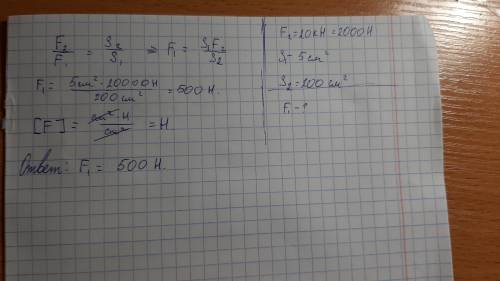 F₂/F₁ = S₂/S₁ => F₁ = S₁F₂/S₂
F₁ = 5см² · 20000Н/200см² = 500 Н.
[F] = см²·Н/см² = Н
Ответ: F₁ = 500 Н.
F₂ = 20кН = 2000Н
S₁ - 5 см²
S₂ = 200 см²
F₁ - ?